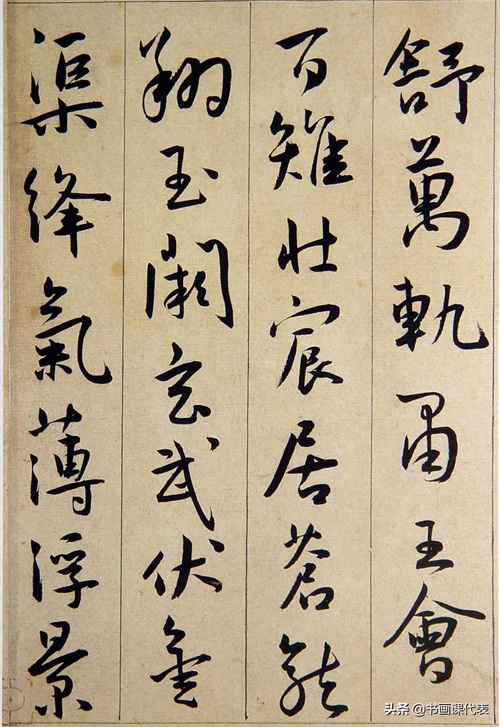 舒萬軌肅王會
百雉壯宸居蒼龍
翔玉闕玄武伏金
渠絳氣薄浮景
头条 @书画课代表